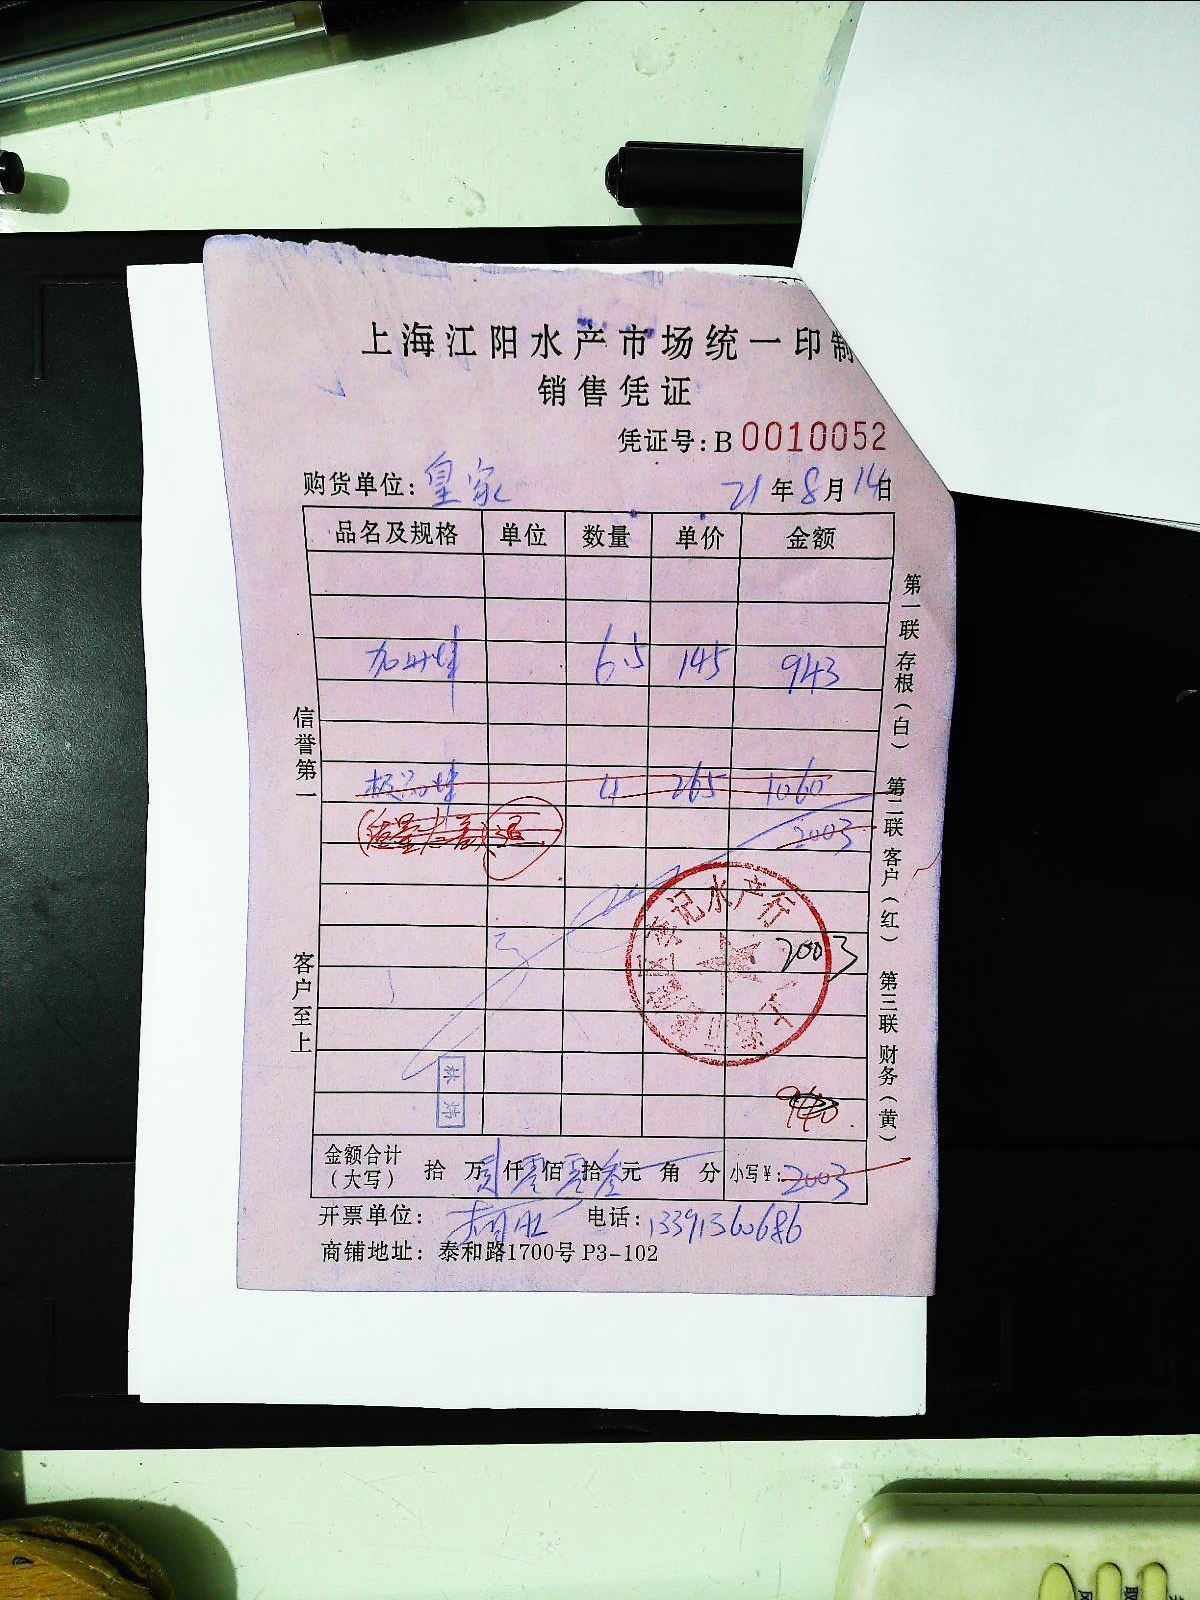 上海江阳水产市场统一印制
销售凭证
凭证号: B 0010052
购货单位: 皇家 21年8月14日
品名及规格 单位 数量 单价 金额
6.5 145 943
4 265 1060
2003
2003
940
金额合计（大写） 拾 万 贰 仟 零 佰 零 拾 叁 元 角 分 小写¥: 2003
开票单位: 电话: 13391360686
商铺地址: 泰和路1700号 P3-102
信誉第一
客户至上
第一联 存根（白） 第二联 客户（红） 第三联 财务（黄）
记水产行